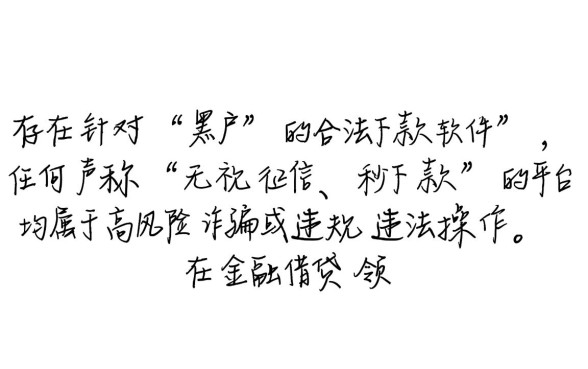 存在针对“黑户”的合法下款软件”，
任何声称“无视征信、秒下款”的平台
均属于高风险诈骗或违规违法操作。
在金融借贷领